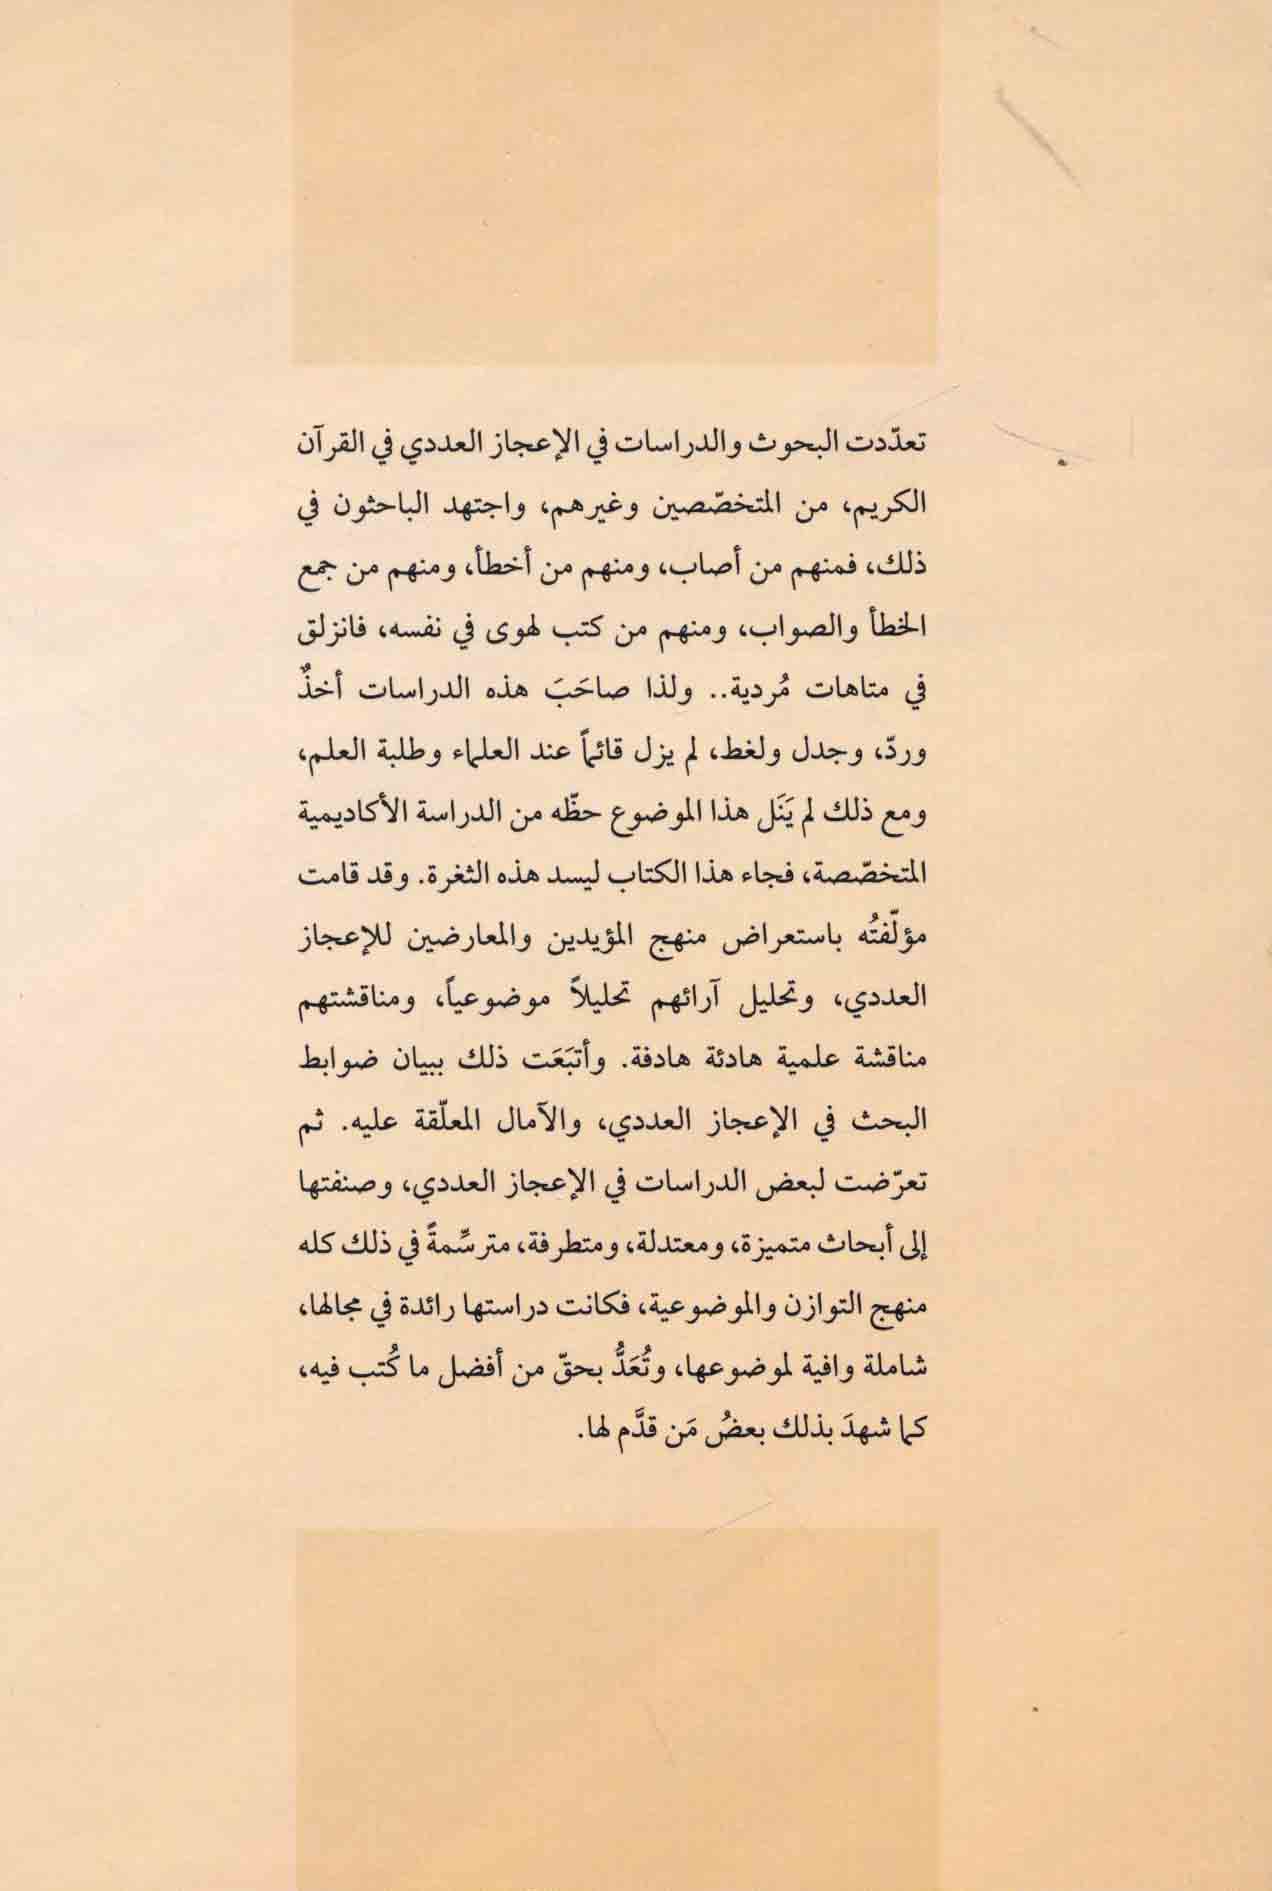 تعدّدت البحوث والدراسات في الإعجاز العددي في القرآن
الكريم، من المتخصّصين وغيرهم، واجتهد الباحثون في
ذلك، فمنهم من أصاب، ومنهم من أخطأ، ومنهم من جمع
الخطأ والصواب، ومنهم من كتب لهوى في نفسه، فانزلق
في متاهات مُردية.. ولذا صاحَبَ هذه الدراسات أخذٌ
وردّ، وجدل ولغط، لم يزل قائماً عند العلماء وطلبة العلم،
ومع ذلك لم يَنَل هذا الموضوع حظّه من الدراسة الأكاديمية
المتخصّصة، فجاء هذا الكتاب ليسد هذه الثغرة. وقد قامت
مؤلّفتُه باستعراض منهج المؤيدين والمعارضين للإعجاز
العددي، وتحليل آرائهم تحليلاً موضوعياً، ومناقشتهم
مناقشة علمية هادئة هادفة. وأتبَعَت ذلك ببيان ضوابط
البحث في الإعجاز العددي، والآمال المعلّقة عليه. ثم
تعرّضت لبعض الدراسات في الإعجاز العددي، وصنفتها
إلى أبحاث متميزة، ومعتدلة، ومتطرفة، مترسِّمةً في ذلك كله
منهج التوازن والموضوعية، فكانت دراستها رائدة في مجالها،
شاملة وافية لموضوعها، وتُعَدُّ بحقّ من أفضل ما كُتب فيه،
كما شهدَ بذلك بعضُ مَن قدَّم لها.